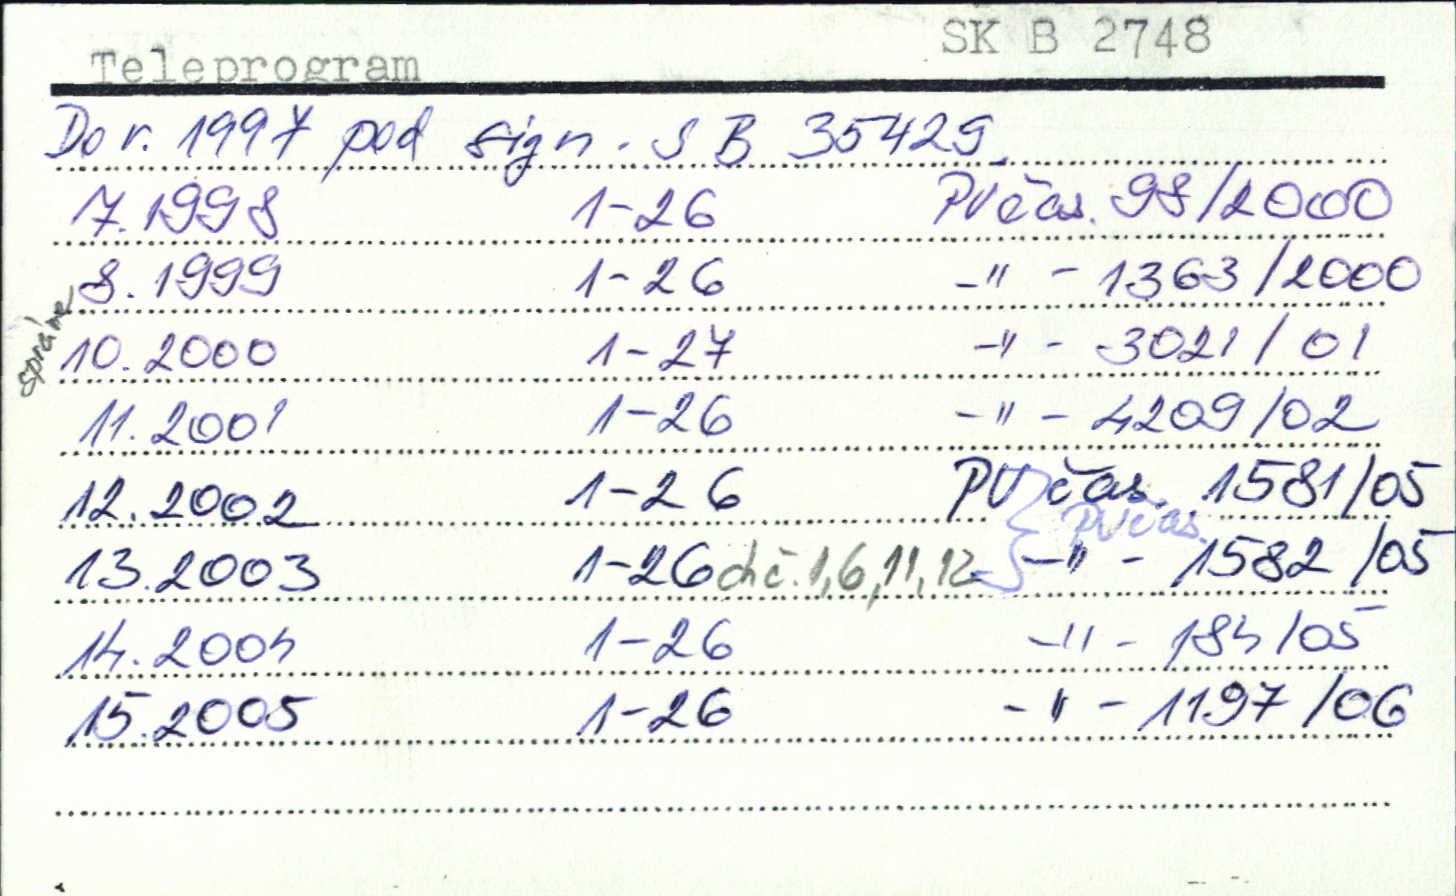 SK B 2748
Teleprogram
Do r. 1997 pod sign. S B 35429.
7.1998 1-26 PV čas. 98/2000
8.1999 1-26 -"- 1363/2000
správne 10.2000 1-27 -"- 3021/01
11.2001 1-26 -"- 4209/02
12.2002 1-26 PV čas. 1581/05
PV čas.
13.2003 1-26 ch č. 1,6,11,12 -"- 1582/05
14.2004 1-26 -"- 184/05
15.2005 1-26 -"- 1197/06